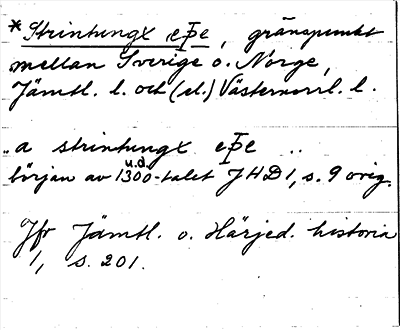 *Strintungx eþe, gränspunkt
mellan Sverige o. Norge,
Jämtl. l. och (el.) Västernorrl. l.
„a strintungx eþe ..
början av 1300-talet JHD 1, s. 9 orig.
u.d.
Jfr Jämtl. o. Härjed. historia
1, s. 201.